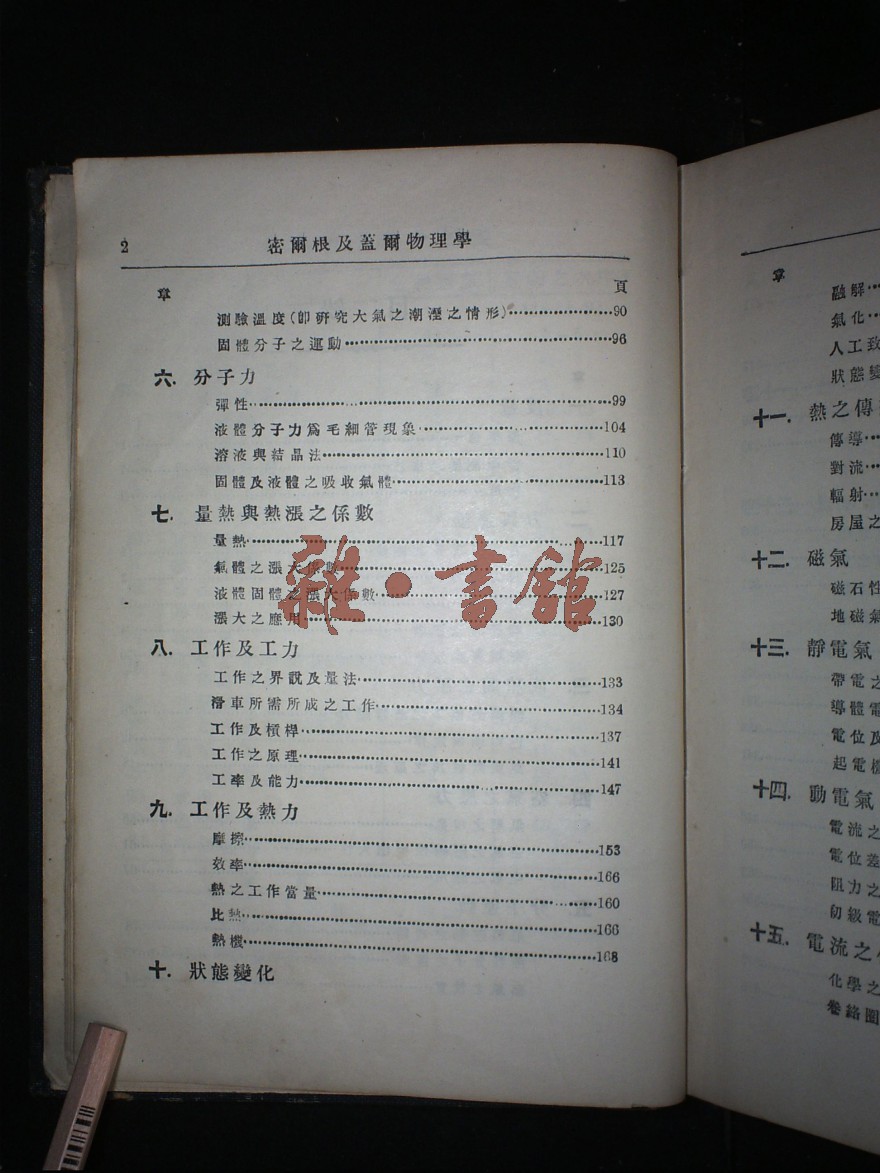 2
密爾根及蓋爾物理學
章 頁
測驗溫度(卽研究大氣之潮溼之情形)…………90
固體分子之運動…………96
六. 分子力
彈性…………99
液體分子力爲毛細管現象…………104
溶液與結晶法…………110
固體及液體之吸收氣體…………113
七. 量熱與熱漲之係數
量熱…………117
氣體之漲大係數…………125
液體固體之漲大係數…………127
漲大之應用…………130
八. 工作及工力
工作之界說及量法…………133
滑車所需所成之工作…………134
工作及槓桿…………137
工作之原理…………141
工率及能力…………147
九. 工作及熱力
摩擦…………153
效率…………166
熱之工作當量…………160
比熱…………166
熱機…………168
十. 狀態變化
雜·書館
章
融解…
氣化…
人工致
狀態變
十一. 熱之傳
傳導…
對流…
輻射…
房屋之
十二. 磁氣
磁石性
地磁氣
十三. 靜電氣
帶電之
導體電
電位及
起電機
十四. 動電氣
電流之
電位差
阻力之
初級電
十五. 電流之
化學之
卷絡圈